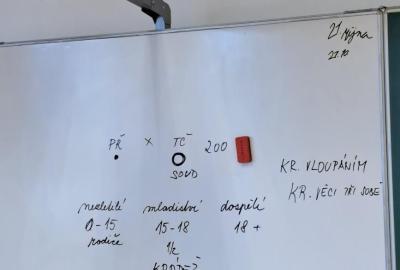 21 října
21.10
PŘ × TČ 200
SOUD
KR. VLOUPÁNÍM
KR. VĚCI PŘI SOBĚ
nezletilí mladiství dospělí
0-15 15-18 18+
rodiče
KRÁDEŽ